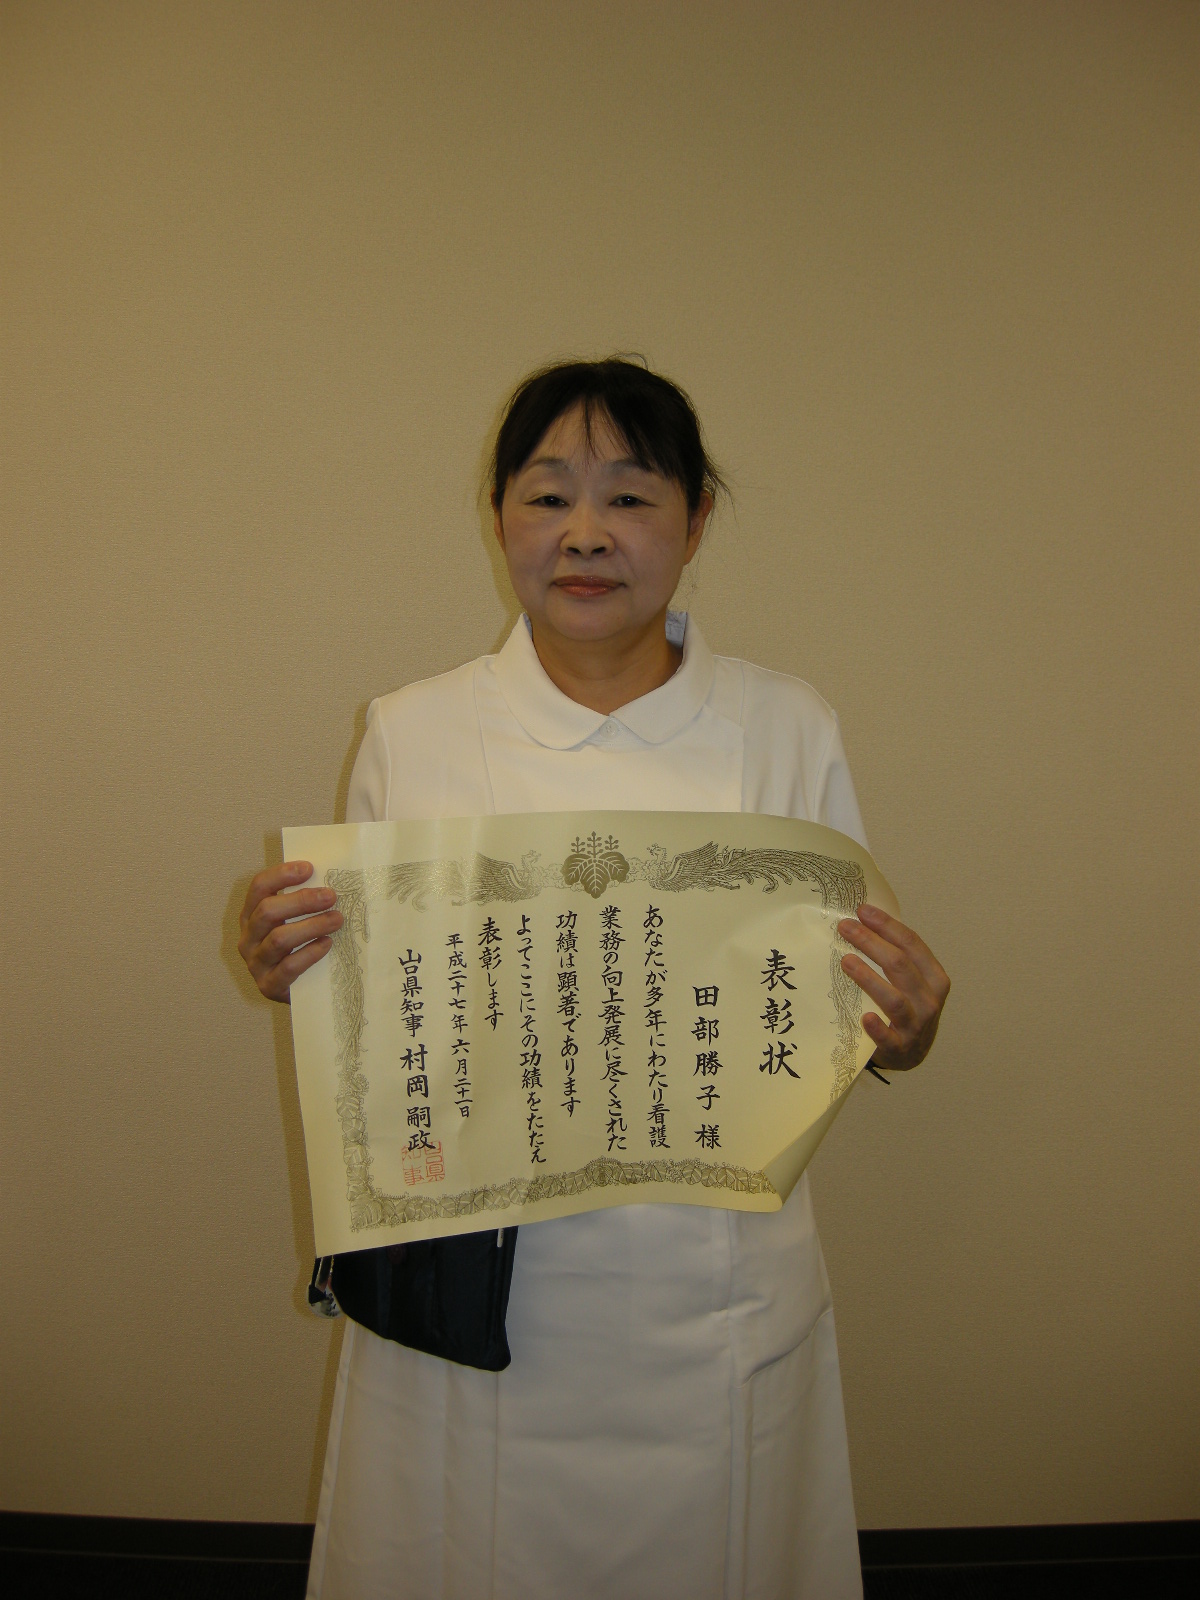 表彰状
田部勝子様
あなたが多年にわたり看護
業務の向上発展に尽くされた
功績は顕著であります
よってここにその功績をたたえ
表彰します
平成二十七年六月二十一日
山口県知事 村岡嗣政
山口県
知事